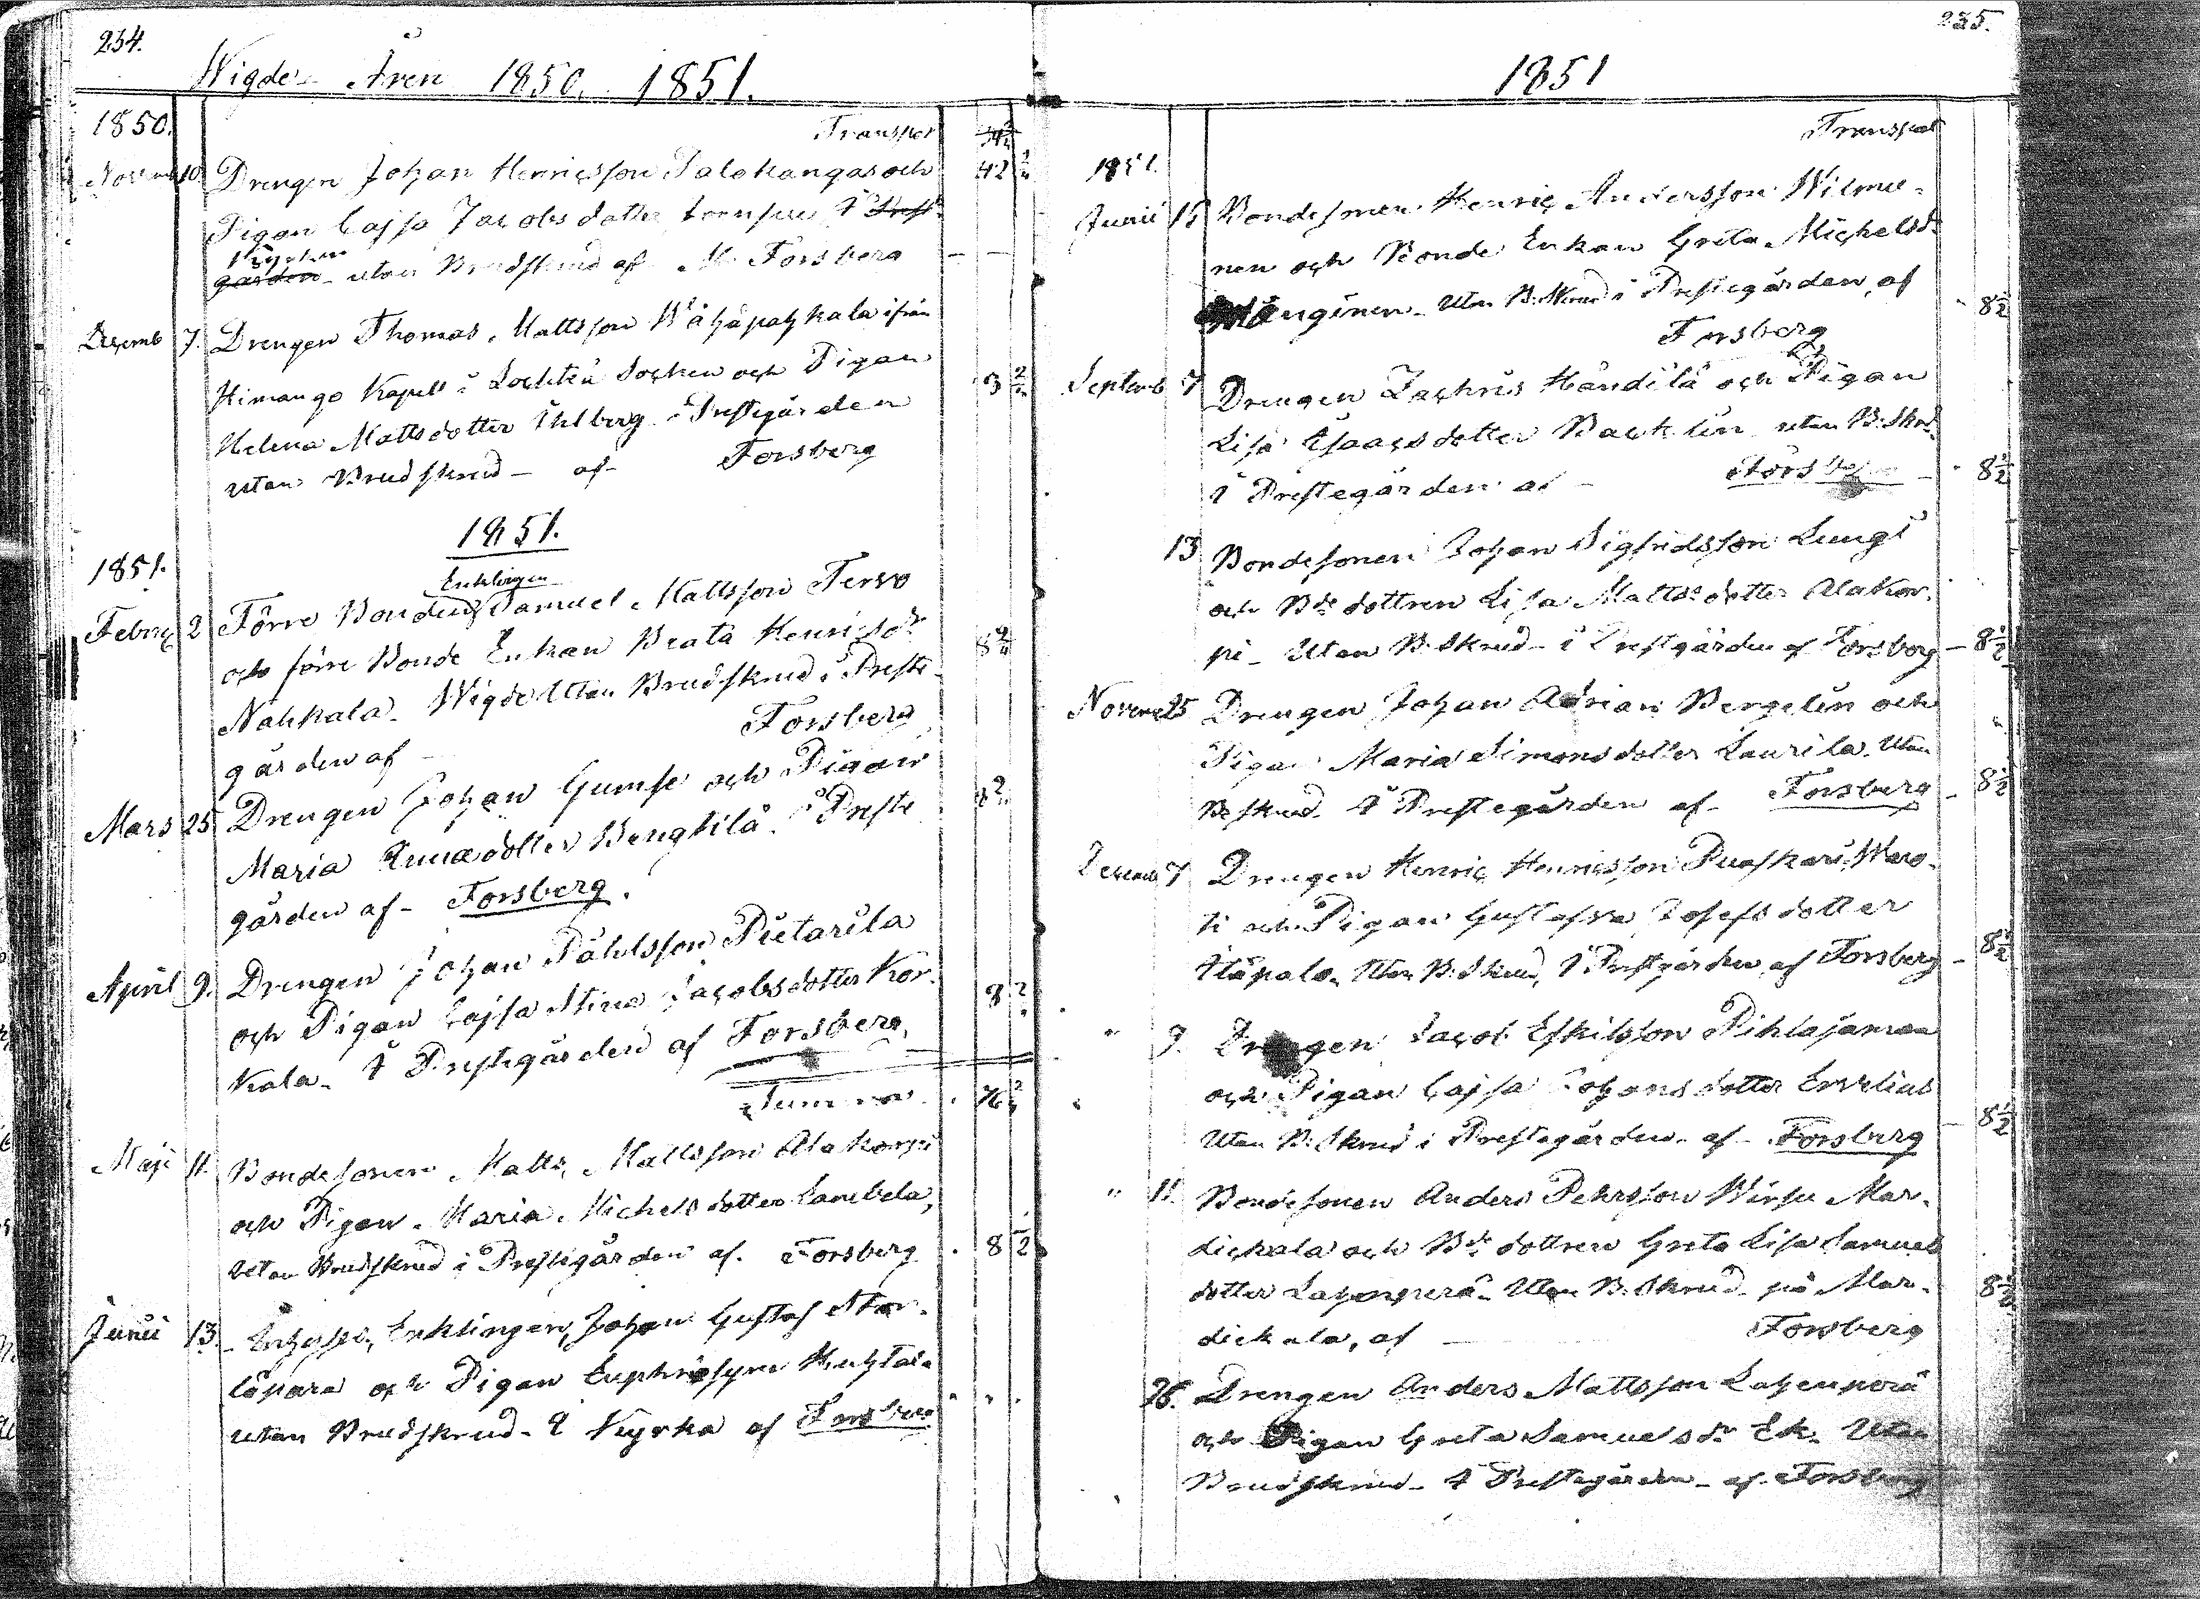 234.
Wigde Åren 1850. 1851.
1850.
Transport
Novemb 10. Drengen Johan Henricsson Palokangas och 42
Pigan Cajsa Jacobs dotter i Prest
Kyrkan
gården utan Brudskrud af M. Forsberg
Decemb 7. Drengen Thomas Mattsson ifrån
Himango Kapell i Lochteå Socken och Pigan 3
Helena Matts dotter Uhlberg i Prestegården
utan Brudskrud – af – Forsberg
1851.
1851.
Enklingen
Februq 2 Förre Bonden Samuel Mattsson Tervo
och förre Bonde Enkan Beata Henricsdr 8
Nahkala. Wigde Utan Brudskrud i Preste
gården af – Forsberg
Mars 25 Drengen Johan Gumse och Pigan
Maria dotter Bengtilä. i Preste
gården af – Forsberg.
April 9. Drengen Johan Påhlsson Pietarila
och Pigan Cajsa Stina Jacobsdotter Kor- 8
kala – i Prestegården af Forsberg.
Summa 76
Maji 11. Bondesonen Matts Mattsson Alakorpi
och Pigan Maria Michels dotter
utan Brudskrud i Prestegården af. Forsberg 8 1/2
Junii 13. Enklingen, Johan Gustaf
och Pigan Euphrosyne
utan Brudskrud – i Kyrka af Forsberg
235.
1851
Transport
1851.
Junii 15 Bondesonen Henric Andersson Wilmu-
nen och Bonde Enkan Greta Michelsdr
utan B. Skrud i Prestegården af 8 1/2
Forsberg
Septemb 7 Drengen Zachris Händilä och Pigan
Lisa Isaacsdotter Backlin utan B. Skrd
i Prestegården af – Forsberg 8 1/2
13 Bondesonen Johan Sigfridsson Lungi
och Bde dottren Lisa Mattsdotter Alakor-
pi – Utan B. Skrud – i Prestgården af Forsberg – 8 1/2
Novemb 25 Drengen Johan Adrian Bergelin och
Pigan Maria Simons dotter Laurila. Utan
B. skrud i Prestegården af – Forsberg – 8 1/2
Decemb 7 Drengen Henric Henricsson
ti och Pigan Gustafva Josefs dotter
Utan B. Skrud, i Prestgården af Forsberg – 8 1/2
" 9. Drengen Jacob Eskilsson Pihlajamaa
och Pigan Cajsa Johans dotter
Utan B. Skrud i Prestegården – af – Forsberg – 8 1/2
" 11. Bondesonen Anders Pehrsson Wirsu Mar-
dickala och Bde dottren Greta Lisa Samuels
dotter Lahenperä – Utan B. Skrud – på Mar- 8 1/2
dickala, af – Forsberg
26. Drengen Anders Mattsson Lahenperä
och Pigan Greta Samuelsdr Ek. Utan
Brudskrud – i Prestegården – af – Forsberg